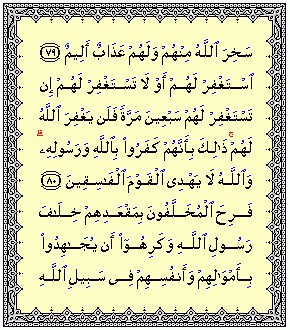 سَخِرَ ٱللَّهُ مِنْهُمْ وَلَهُمْ عَذَابٌ أَلِيمٌ ﴿٧٩﴾
ٱسْتَغْفِرْ لَهُمْ أَوْ لَا تَسْتَغْفِرْ لَهُمْ إِن
تَسْتَغْفِرْ لَهُمْ سَبْعِينَ مَرَّةً فَلَن يَغْفِرَ ٱللَّهُ
لَهُمْ ۚ ذَٰلِكَ بِأَنَّهُمْ كَفَرُوا۟ بِٱللَّهِ وَرَسُولِهِۦ ۗ
وَٱللَّهُ لَا يَهْدِى ٱلْقَوْمَ ٱلْفَـٰسِقِينَ ﴿٨٠﴾
فَرِحَ ٱلْمُخَلَّفُونَ بِمَقْعَدِهِمْ خِلَـٰفَ
رَسُولِ ٱللَّهِ وَكَرِهُوٓا۟ أَن يُجَـٰهِدُوا۟
بِأَمْوَٰلِهِمْ وَأَنفُسِهِمْ فِى سَبِيلِ ٱللَّهِ